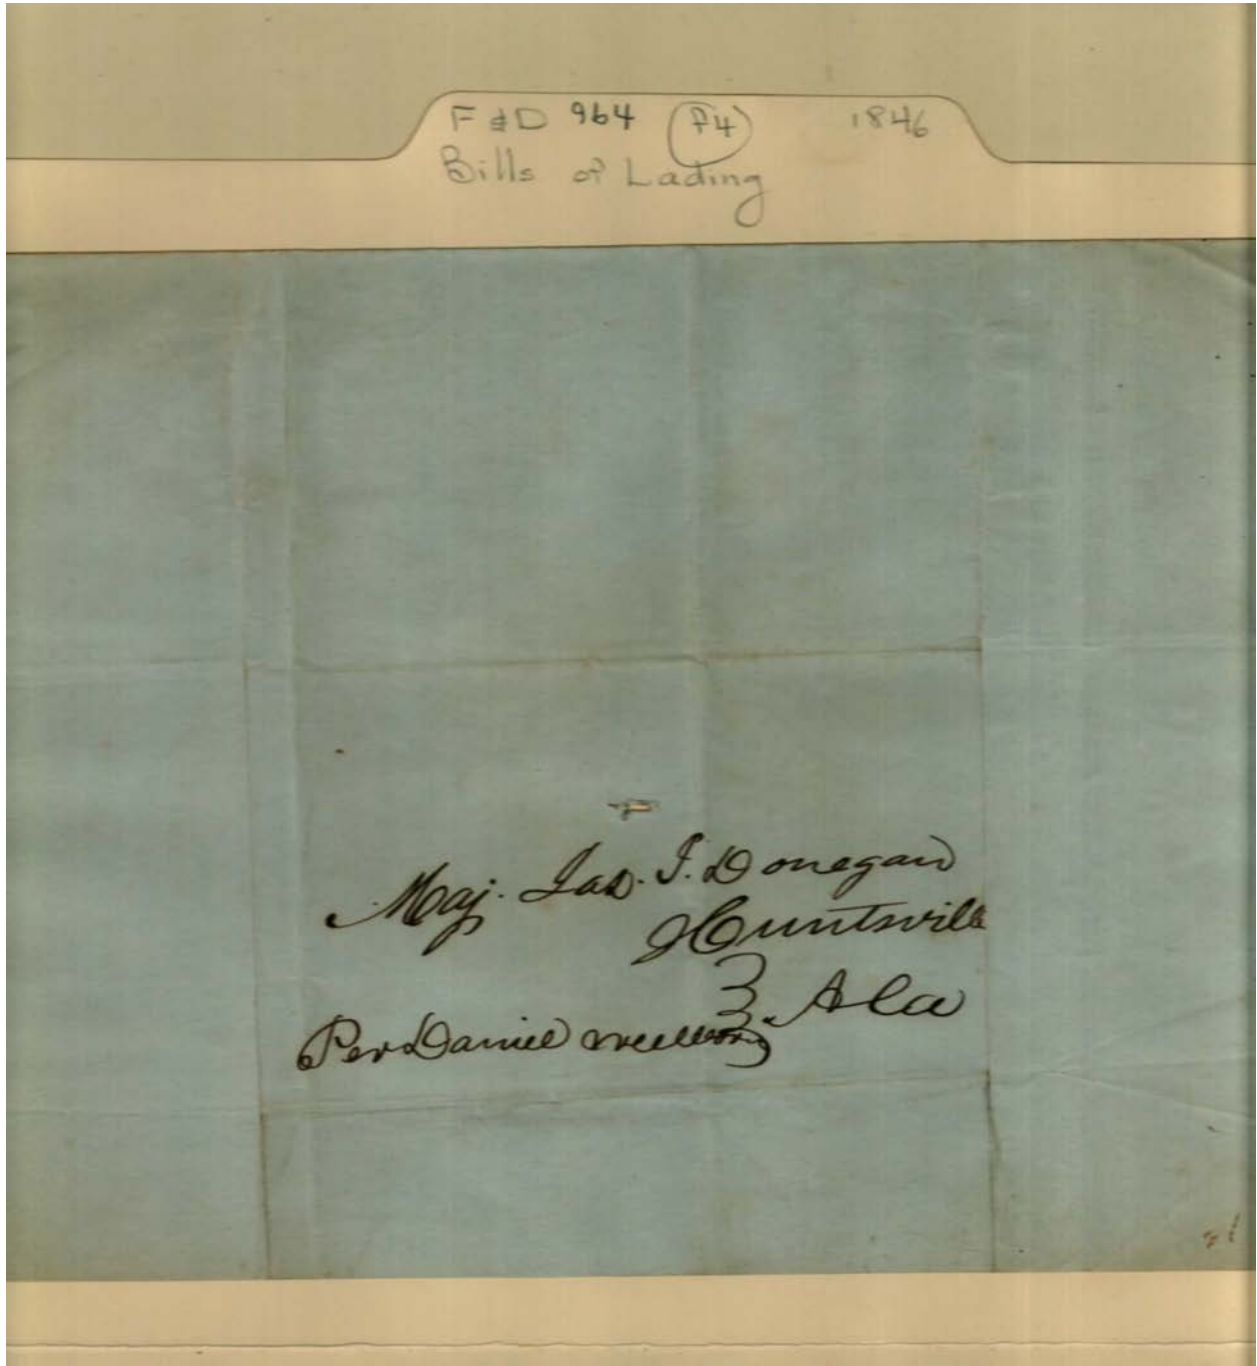 F & D 964 (P4) 1846
Bills of Lading
Maj. Jas. J. Donegan
Huntsville
Ala
Per Daniel